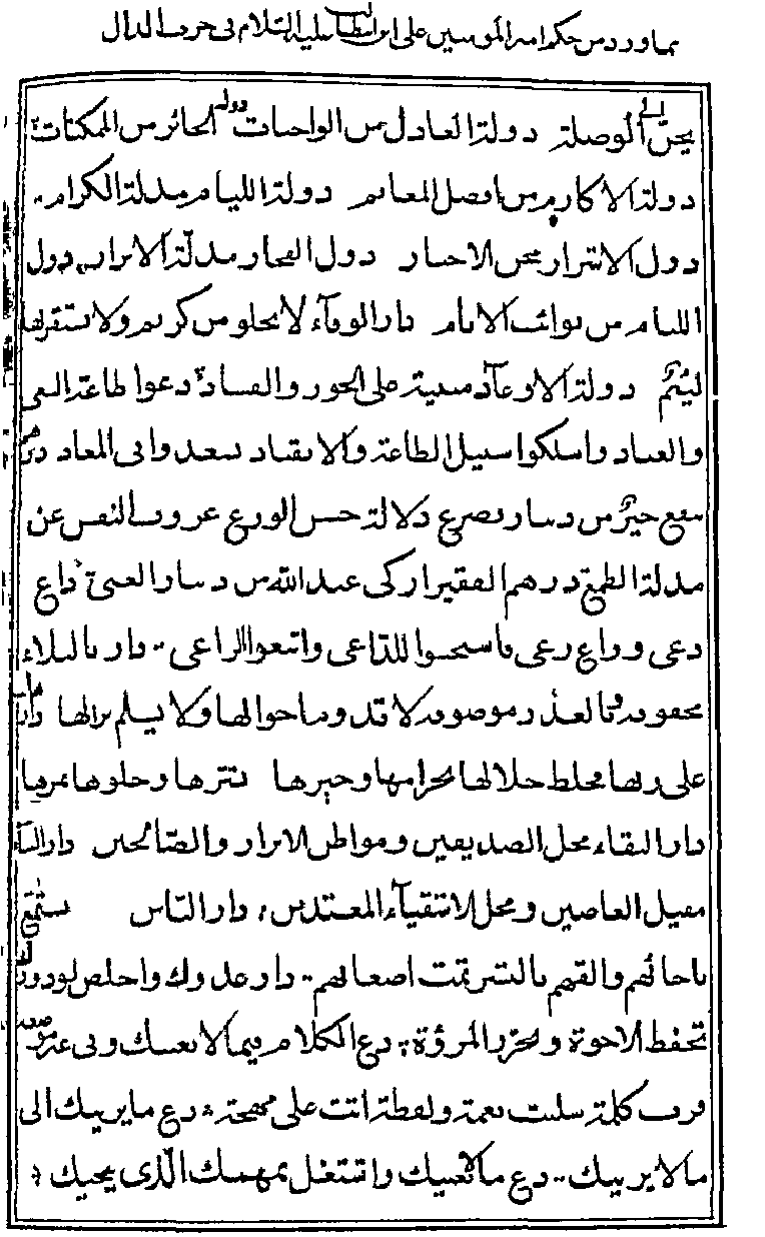 مما ورد من حكم امير المؤمنين على ابن ابيطالب عليه السلام فى حرف الدال
يحن الى الوصلة دولة العادل من الواجبات دولة الجائر من الممكنات
دولة الاكارم من افضل المغانم دولة الليام مذلة الكرام
دول الاشرار محن الاخيار دول الفجار مذلة الابرار دول
الليام من نوائب الايام دار الوفاء لا يخلو من كريم ولا يستقر بها
ليئم دولة الاوغاد مبنية على الجور والفساد دعوا طاعة البغى
والعناد واسلكوا سبيل الطاعة والانقياد تسعدوا فى المعاد درهم
ينفع خير من دينار يصرع دلالة حسن الورع عزوف النفس عن
مذلة الطمع درهم الفقير ازكى عند الله من دينار الغنى داع
دعى وراع رعى فاستجيبوا للداعى واتبعوا الراعى دار بالبلاء
محفوفة وبالغدر موصوفة لا تدوم احوالها ولا يسلم نزالها دار هانت
على ربها فخلط حلالها بحرامها وخيرها بشرها وحلوها بمرها
دار البقاء محل الصديقين ومواطن الابرار والصالحين دار الفناء
مقيل العاصين ومحل الاشقياء المعتدين دار الناس تستمتع
باخائهم والقهم بالبشر تمت اضغانهم دار عدوك واخلص لودودك
تحفظ الاخوة وتحرز المروة دع الكلام فيما لا يعنيك وفى غير موضعه
فرب كلمة سلبت نعمة ولفظة اتت على مهجة دع ما يريبك الى
ما لا يريبك دع ما لا يعنيك واشتغل بمهمك الذى ينجيك